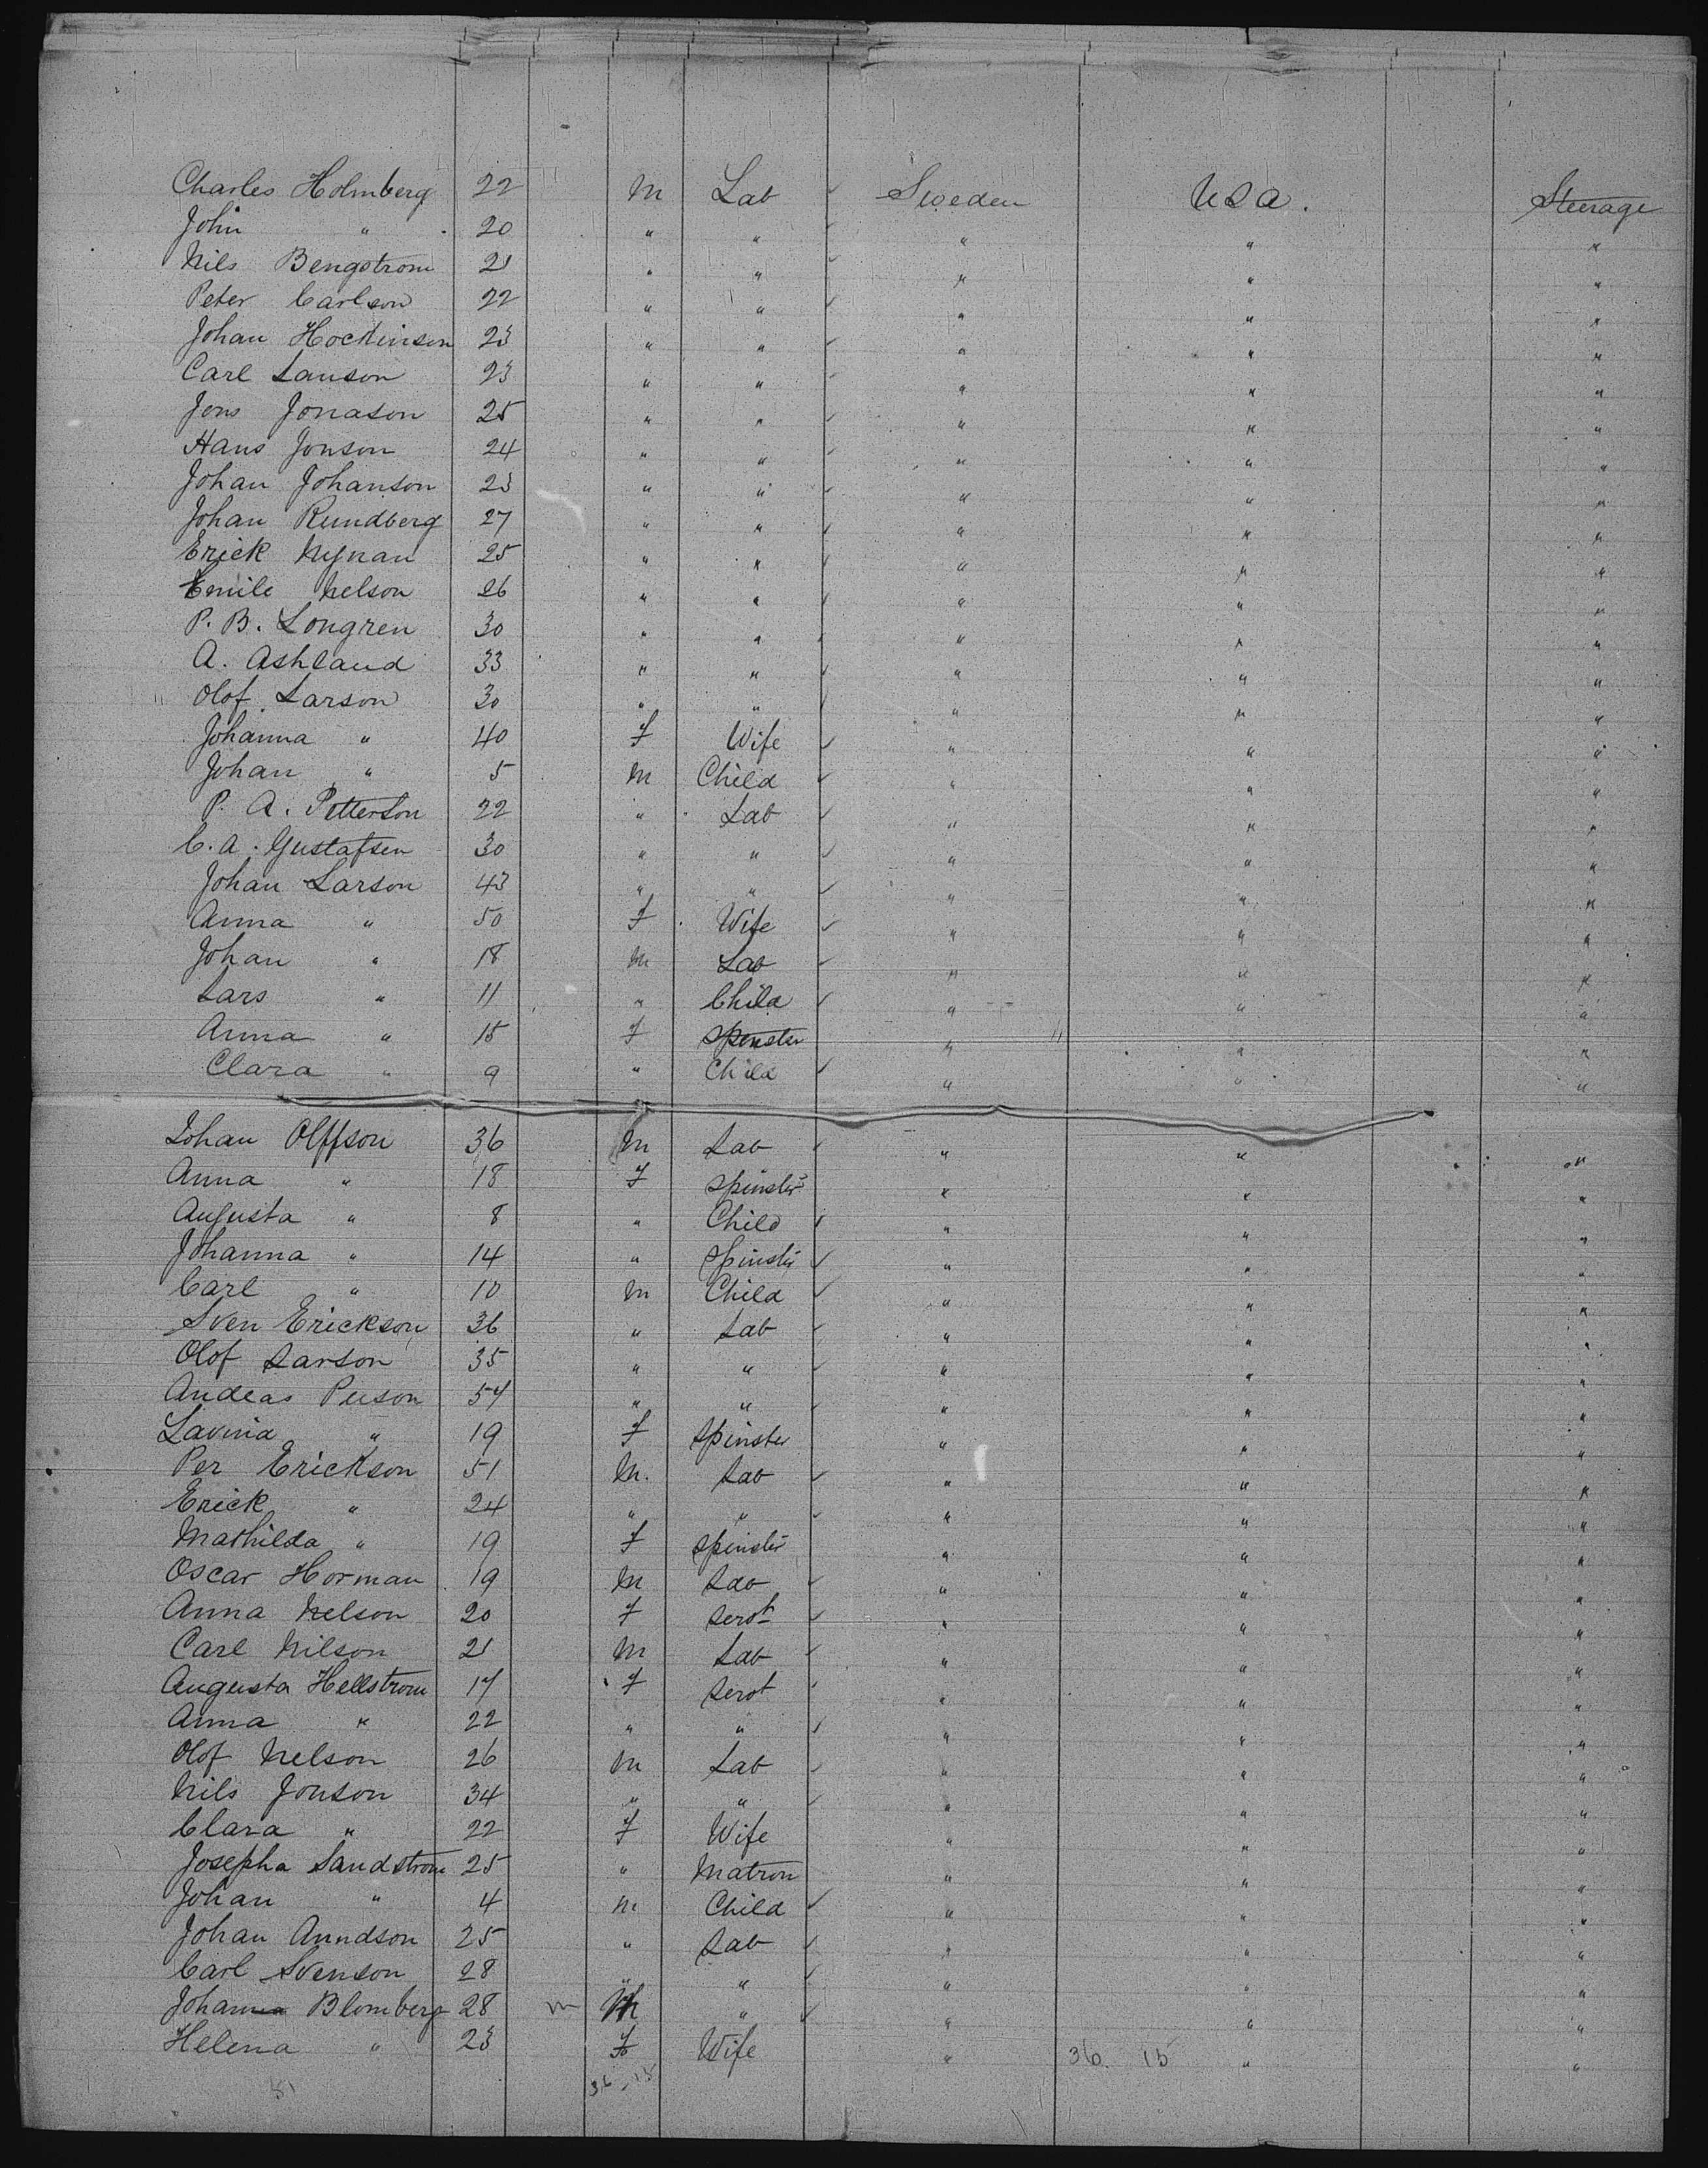 Charles Holmberg 22 M Lab ✓ Sweden USA. Steerage
John " 20 " " ✓ " " "
Nils Bengstrom 21 " " ✓ " " "
Peter Carlson 22 " " ✓ " " "
Johan Hockinson 23 " " ✓ " " "
Carl Lauson 23 " " ✓ " " "
Jons Jonason 25 " " ✓ " " "
Hans Jonson 24 " " ✓ " " "
Johan Johanson 23 " " ✓ " " "
Johan Rundberg 27 " " ✓ " " "
Erick Nynan 25 " " ✓ " " "
Emile Nelson 26 " " ✓ " " "
P. B. Longren 30 " " ✓ " " "
A. Ashland 33 " " ✓ " " "
Olof Larson 30 " " ✓ " " "
Johanna " 40 F Wife ✓ " " "
Johan " 5 M Child ✓ " " "
P. A. Petterson 22 " Lab ✓ " " "
C. A. Gustafsen 30 " " ✓ " " "
Johan Larson 43 " " ✓ " " "
Anna " 50 F Wife ✓ " " "
Johan " 18 M Lab ✓ " " "
Lars " 11 " Child ✓ " " "
Anna " 15 F Spinster " " "
Clara " 9 " Child ✓ " " "
Johan Olffson 36 M Lab ✓ " " "
Anna " 18 F Spinster " " "
Augusta " 8 " Child ✓ " " "
Johanna " 14 " Spinster ✓ " " "
Carl " 10 M Child ✓ " " "
Sven Erickson 36 " Lab ✓ " " "
Olof Larson 35 " " ✓ " " "
Andeas Peeson 54 " " ✓ " " "
Lavina " 19 F Spinster " " "
Per Erickson 51 M. Lab ✓ " " "
Erick " 24 " " ✓ " " "
Mathilda " 19 F Spinster " " "
Oscar Horman 19 M Lab ✓ " " "
Anna Nelson 20 F Servt ✓ " " "
Carl Nilson 21 M Lab ✓ " " "
Augusta Hellstrom 17 F Servt ✓ " " "
Anna " 22 " " ✓ " " "
Olof Nelson 26 M Lab ✓ " " "
Nils Jonson 34 " " ✓ " " "
Clara " 22 F Wife " " "
Josepha Sandstrom 25 " Matron " " "
Johan " 4 M Child ✓ " " "
Johan Anndson 25 " Lab ✓ " " "
Carl Svenson 28 " " ✓ " " "
Johanna Blomberg 28 m M " ✓ " " "
Helena " 23 F Wife " 36. 15 " "
51 36, 15